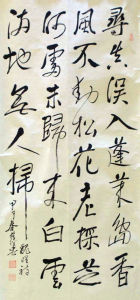 尋真誤入蓬萊島香
風不動松花老採芝
何處未歸来白雲
滿地無人掃
魏野詩